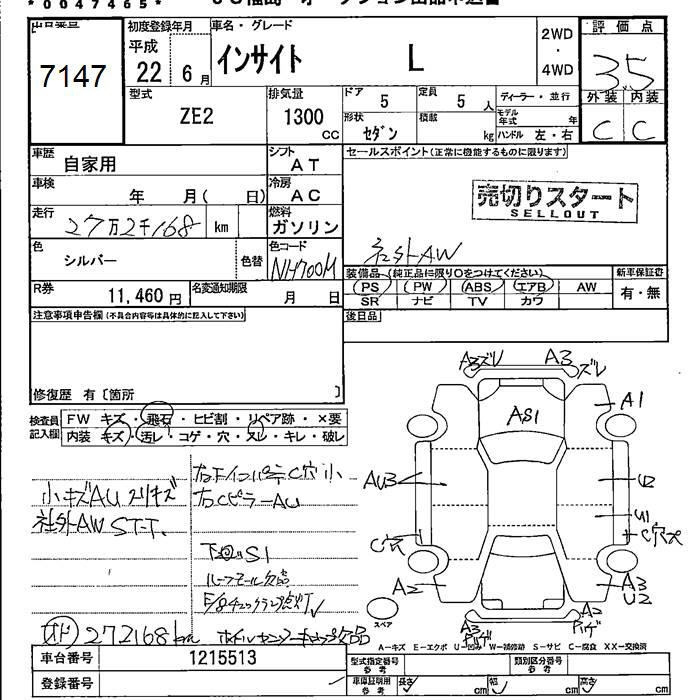 *0047465*
出品番号
7147
初度登録年月
平成
22 6月
車名・グレード
インサイト L
2WD
・
4WD
評価点
3.5
外装 内装
C C
型式
ZE2
排気量
1300
CC
ドア
5
定員
5人
ディーラー・並行
形状
セダン
積載
kg
モデル年式 年
ハンドル 左・右
車歴
自家用
シフト
AT
車検
年 月( 日)
冷房
AC
走行
27万2千168 km
燃料
ガソリン
色
シルバー
色替
色コード
NH700M
R券
11,460円
名変通知期限
月 日
セールスポイント(正常に機能するものに限ります)
売切りスタート
SELLOUT
社外AW
装備品(純正品に限り○をつけてください)
PS PW ABS エアB AW
SR ナビ TV カワ
新車保証書
有・無
注意事項申告欄(不具合内容等は具体的に記入して下さい)
後日品
修復歴 有〔箇所 〕
検査員記入欄
FW キズ・飛石・ヒビ割・リペア跡・×要
内装 キズ・汚レ・コゲ・穴・スレ・キレ・破レ
小キズAU スリキズ
社外AW ST-T.
右Cピラー AU
下回りS1
ルーフモール欠品
E/gチェックランプ点灯
オド 272168km ホイルセンターキャップ欠品
A3ズレ A3ズレ
A1
AS1
AU3
U2
U1
C穴
C穴大
A2
A3
U2
スペア
A3
A2
A-キズ E-エクボ U-凹み W-補修跡 S-サビ C-腐食 XX-交換済
車台番号
1215513
登録番号
型式指定番号
参考
類別区分番号
参考
車庫証明用
参考
長さ cm 幅 cm 高さ cm